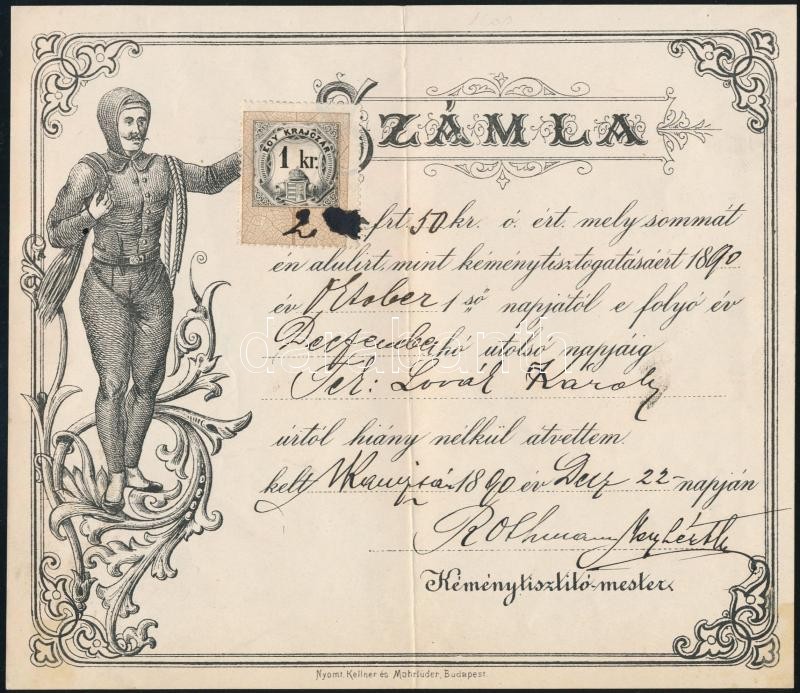 SZÁMLA
EGY KRAJCZÁR
1 kr.
2 frt 50 kr. ó. ért. mely sommát
én alulirt, mint kéménytisztogatásaért 1890
év October 1 ső napjától e folyó év
Dectember hó utolsó napjáig
Karoly
úrtól hiány nélkül átvettem.
kelt 1890 év Dez 22 napján
Rothmann
Kéménytisztító-mester.
Nyomt. Kellner és Mohrlüder, Budapest.
darabanth